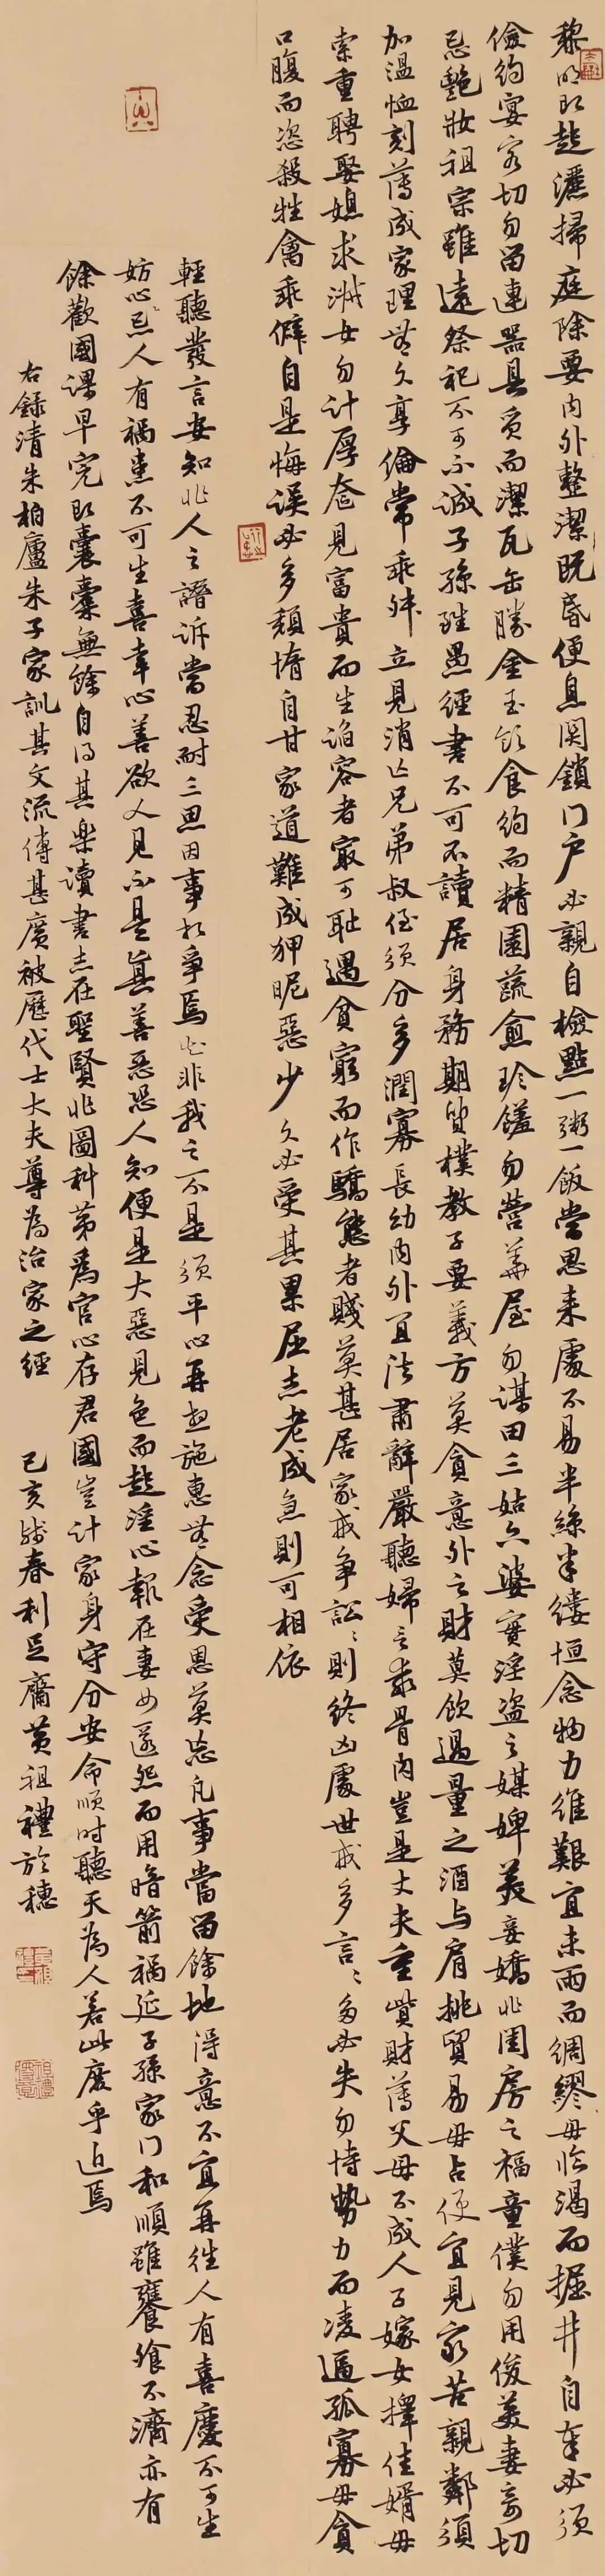 黎明即起灑掃庭除要內外整潔既昏便息関鎖门户必親自檢點一粥一飯當思来處不易半絲半縷恒念物力維艱宜未雨而綢繆毋临渴而掘井自奉必須
儉約宴客切勿留連器具質而潔瓦缶勝金玉飲食約而精園蔬愈珍饈勿營華屋勿謀田三姑六婆實淫盗之媒婢美妾嬌非閨房之福童僕勿用俊美妻妾切
忌艷妝祖宗雖遠祭祀不可不誠子孫雖愚經書不可不讀居身務期質樸教子要義方莫貪意外之財莫飲過量之酒与肩挑貿易毋占便宜見家苦親鄰須
加温恤刻薄成家理無久享倫常乖舛立見消亡兄弟叔侄須分多潤寡長幼內外宜法肅辭嚴聽婦言乖骨肉豈是丈夫重貲財薄父母不成人子嫁女擇佳婿毋
索重聘娶媳求淑女勿計厚奩見富貴而生諂容者最可耻遇貧窮而作驕態者賤莫甚居家戒争訟訟則終凶處世戒多言言多必失勿恃勢力而凌逼孤寡毋貪
口腹而恣殺牲禽乖僻自是悔誤必多頹惰自甘家道難成狎昵惡少久必受其累屈志老成急則可相依
輕聽發言安知非人之譖訴當忍耐三思因事相爭焉知非我之不是須平心再想施惠無念受恩莫忘凡事當留餘地得意不宜再往人有喜慶不可生
妨心忌人有禍患不可生喜幸心善欲人見不是真善惡恐人知便是大惡見色而起淫心報在妻女匿怨而用暗箭禍延子孫家门和順雖饔飧不濟亦有
餘歡國課早完即囊橐無餘自得其樂讀書志在聖賢非圖科第為官心存君國豈計家身守分安命順时聽天為人若此庶乎近焉
右録清朱柏廬朱子家訓其文流傳甚廣被歷代士大夫尊為治家之經 己亥殘春利足庸黄祖禮於穗